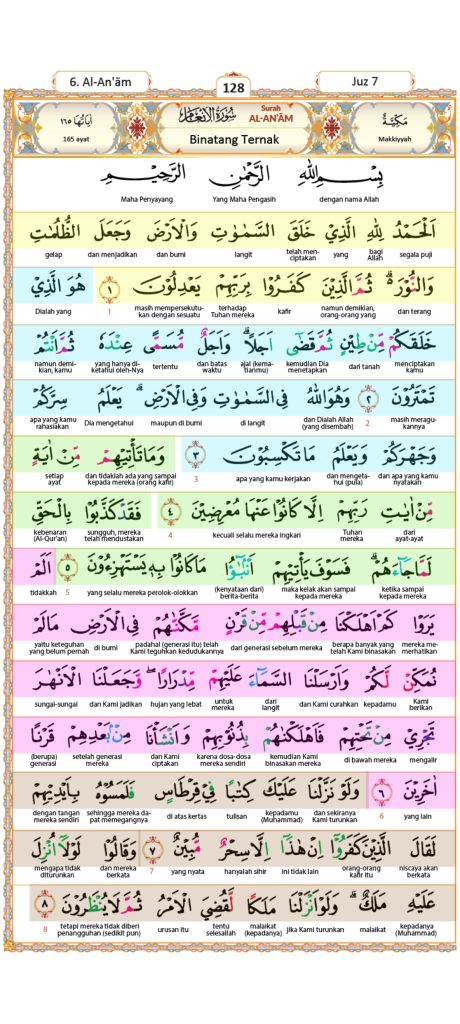 6. Al-An'ām
128
Juz 7
سُوْرَةُ الْاَنْعَامِ
Surah
AL-AN'ĀM
مَكِّيَّةٌ
اٰيَاتُهَا ١٦٥
Makkiyyah
Binatang Ternak
165 ayat
بِسْمِ اللّٰهِ الرَّحْمٰنِ الرَّحِيْمِ
dengan nama Allah Yang Maha Pengasih Maha Penyayang
اَلْحَمْدُ لِلّٰهِ الَّذِيْ خَلَقَ السَّمٰوٰتِ وَالْاَرْضَ وَجَعَلَ الظُّلُمٰتِ
segala puji bagi Allah yang telah men-ciptakan langit dan bumi dan menjadikan gelap
وَالنُّوْرَ ۗ ثُمَّ الَّذِيْنَ كَفَرُوْا بِرَبِّهِمْ يَعْدِلُوْنَ ١ هُوَ الَّذِيْ
dan terang namun demikian, orang-orang yang kafir terhadap Tuhan mereka masih mempersekutu-kan dengan sesuatu 1 Dialah yang
خَلَقَكُمْ مِّنْ طِيْنٍ ثُمَّ قَضٰٓى اَجَلًا ۗ وَاَجَلٌ مُّسَمًّى عِنْدَهٗ ثُمَّ اَنْتُمْ
menciptakan kamu dari tanah kemudian Dia menetapkan ajal (kema-tianmu) dan batas waktu tertentu yang hanya di-ketahui oleh-Nya namun demi-kian, kamu
تَمْتَرُوْنَ ٢ وَهُوَ اللّٰهُ فِى السَّمٰوٰتِ وَفِى الْاَرْضِ ۗ يَعْلَمُ سِرَّكُمْ
masih meragu-kannya 2 dan Dialah Allah (yang disembah) di langit maupun di bumi Dia mengetahui apa yang kamu rahasiakan
وَجَهْرَكُمْ وَيَعْلَمُ مَا تَكْسِبُوْنَ ٣ وَمَا تَأْتِيْهِمْ مِّنْ اٰيَةٍ
dan apa yang kamu nyatakan dan mengeta-hui (pula) apa yang kamu kerjakan 3 dan tidaklah ada yang sampai kepada mereka (orang kafir) setiap ayat
مِّنْ اٰيٰتِ رَبِّهِمْ اِلَّا كَانُوْا عَنْهَا مُعْرِضِيْنَ ٤ فَقَدْ كَذَّبُوْا بِالْحَقِّ
dari ayat-ayat Tuhan mereka kecuali selalu mereka ingkari 4 sungguh, mereka telah mendustakan kebenaran (Al-Qur'an)
لَمَّا جَاۤءَهُمْ ۗ فَسَوْفَ يَأْتِيْهِمْ اَنْۢبٰۤؤُا مَا كَانُوْا بِهٖ يَسْتَهْزِءُوْنَ ٥ اَلَمْ
ketika sampai kepada mereka maka kelak akan sampai kepada mereka (kenyataan dari) berita-berita yang selalu mereka perolok-olokkan 5 tidakkah
يَرَوْا كَمْ اَهْلَكْنَا مِنْ قَبْلِهِمْ مِّنْ قَرْنٍ مَّكَّنّٰهُمْ فِى الْاَرْضِ مَا لَمْ
mereka me-merhatikan berapa banyak yang telah Kami binasakan dari generasi sebelum mereka padahal (generasi itu) telah Kami teguhkan kedudukannya di bumi yaitu keteguhan yang belum pernah
نُمَكِّنْ لَّكُمْ وَاَرْسَلْنَا السَّمَاۤءَ عَلَيْهِمْ مِّدْرَارًا ۖ وَّجَعَلْنَا الْاَنْهٰرَ
Kami berikan kepadamu dan Kami curahkan dari langit untuk mereka hujan yang lebat dan Kami jadikan sungai-sungai
تَجْرِيْ مِنْ تَحْتِهِمْ فَاَهْلَكْنٰهُمْ بِذُنُوْبِهِمْ وَاَنْشَأْنَا مِنْۢ بَعْدِهِمْ قَرْنًا
mengalir di bawah mereka kemudian Kami binasakan mereka karena dosa-dosa mereka sendiri dan Kami ciptakan setelah generasi mereka (berupa) generasi
اٰخَرِيْنَ ٦ وَلَوْ نَزَّلْنَا عَلَيْكَ كِتٰبًا فِيْ قِرْطَاسٍ فَلَمَسُوْهُ بِاَيْدِيْهِمْ
yang lain 6 dan sekiranya Kami turunkan kepadamu (Muhammad) tulisan di atas kertas sehingga mereka da-pat memegangnya dengan tangan mereka sendiri
لَقَالَ الَّذِيْنَ كَفَرُوْٓا اِنْ هٰذَآ اِلَّا سِحْرٌ مُّبِيْنٌ ٧ وَقَالُوْا لَوْلَآ اُنْزِلَ
niscaya akan berkata orang-orang kafir itu ini tidak lain hanyalah sihir yang nyata 7 dan mereka berkata mengapa tidak diturunkan
عَلَيْهِ مَلَكٌ ۗ وَلَوْ اَنْزَلْنَا مَلَكًا لَّقُضِيَ الْاَمْرُ ثُمَّ لَا يُنْظَرُوْنَ ٨
kepadanya (Muhammad) malaikat jika Kami turunkan malaikat (kepadanya) tentu selesailah urusan itu tetapi mereka tidak diberi penangguhan (sedikit pun) 8